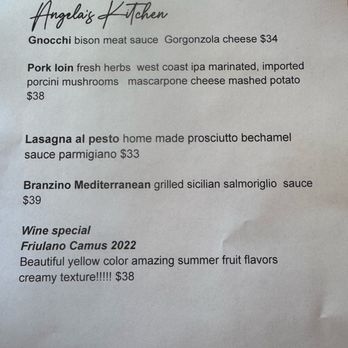 Angela's Kitchen
Gnocchi bison meat sauce Gorgonzola cheese $34
Pork loin fresh herbs west coast ipa marinated, imported
porcini mushrooms mascarpone cheese mashed potato
$38
Lasagna al pesto home made prosciutto bechamel
sauce parmigiano $33
Branzino Mediterranean grilled sicilian salmoriglio sauce
$39
Wine special
Friulano Camus 2022
Beautiful yellow color amazing summer fruit flavors
creamy texture!!!!! $38